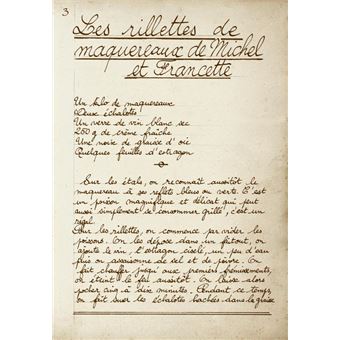 3
Les rillettes de
maquereaux de Michel
et Francette
Un kilo de maquereaux
Deux échalotes
Un verre de vin blanc sec
250 g de crème fraîche
Une noix de graisse d'oie
Quelques feuilles d'estragon
Sur les étals, on reconnaît aussitôt le
maquereau à ses reflets bleus ou verts. C'est
un poisson magnifique et délicat qui peut
aussi simplement se consommer grillé, c'est un
régal.
Pour les rillettes, on commence par vider les
poissons. On les dépose dans un faitout, on
ajoute le vin, l'estragon ciselé, un peu d'eau
puis on assaisonne de sel et de poivre. On
fait chauffer jusqu'aux premiers frémissements,
on éteint le feu aussitôt. On laisse alors
pocher cinq à dix minutes. Pendant ce temps,
on fait suer les échalotes hachées dans la graisse